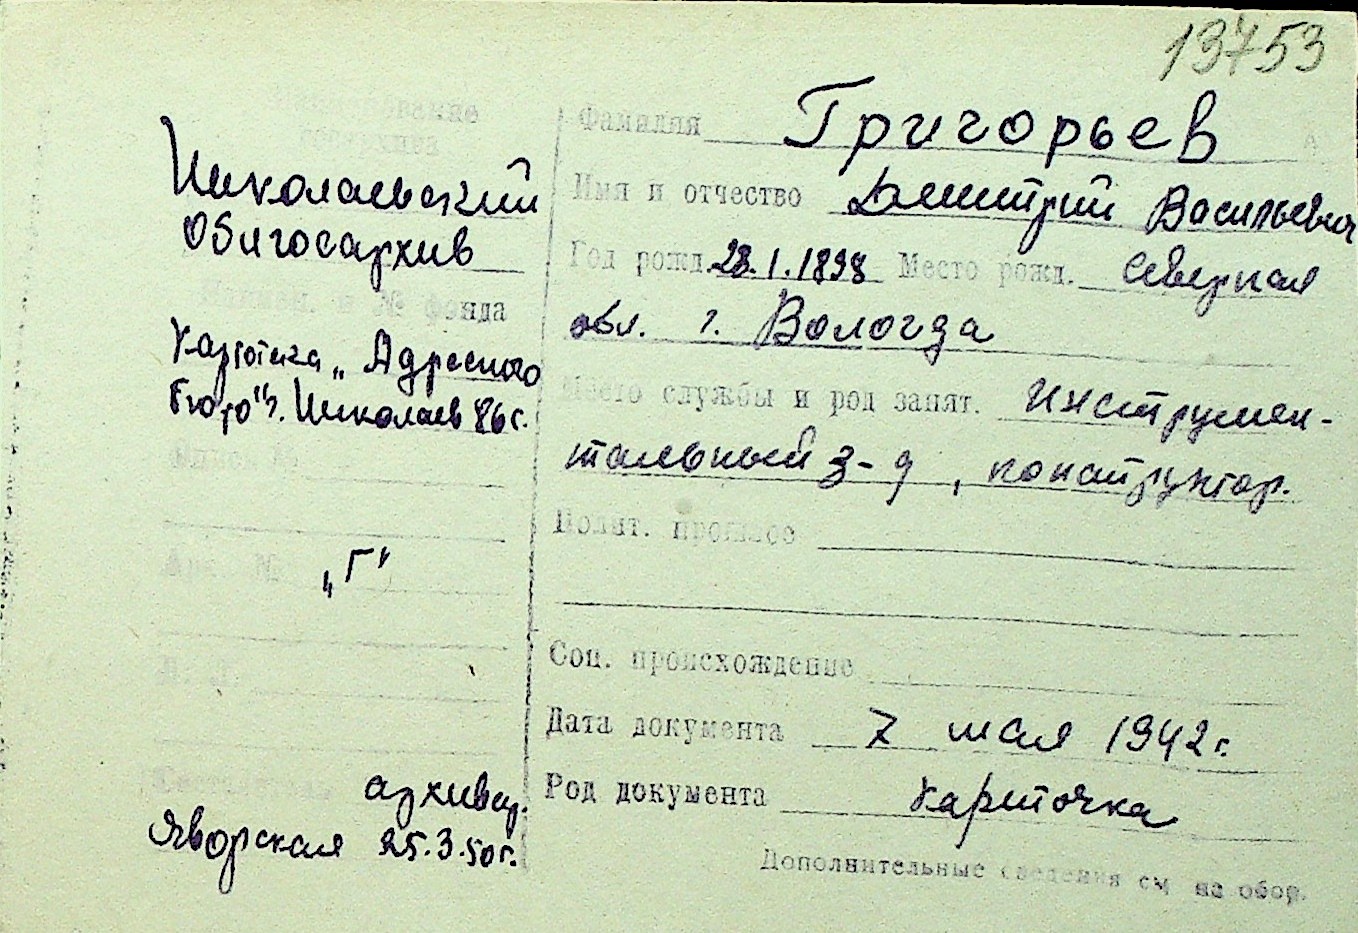 13753
Наименование
госархива
Николаевский
Облгосархив
Наимен. и № фонда
Картотека „Адресного
бюро" г. Николаев 86 г.
Опись №
Арх. №
„Г"
Составитель
архивар.
Яворская 25.3.50 г.
Фамилия Григорьев
Имя и отчество Дмитрий Васильевич
Год рожд. 28.1.1898 Место рожд. Северная
обл. г. Вологда
Место службы и род занят. Инструмен-
тальный з-д, конструктор.
Полит. прошлое
Соц. происхождение
Дата документа 7 мая 1942 г.
Род документа карточка
Дополнительные сведения см на обор.